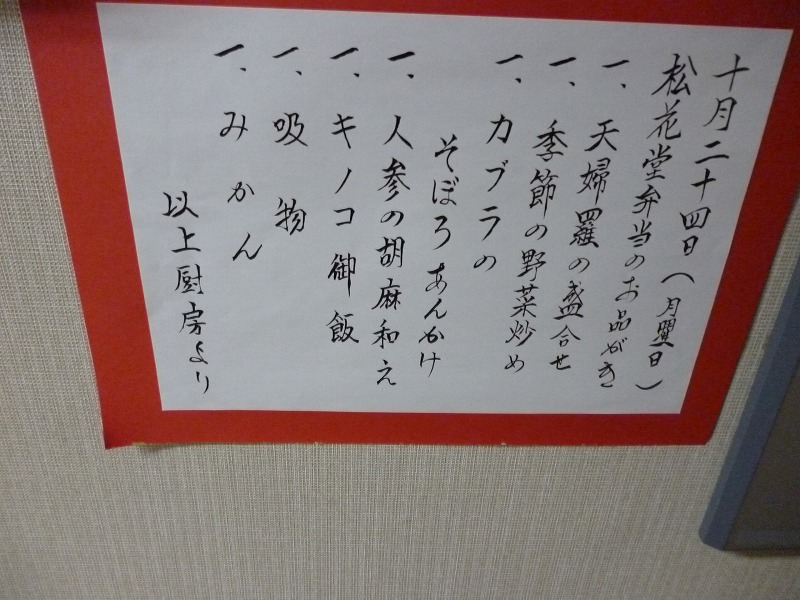 十月二十四日(月曜日)
松花堂弁当のお品がき
一、天婦羅の盛合せ
一、季節の野菜炒め
一、カブラの
そぼろあんかけ
一、人参の胡麻和え
一、キノコ御飯
一、吸物
一、みかん
以上厨房より